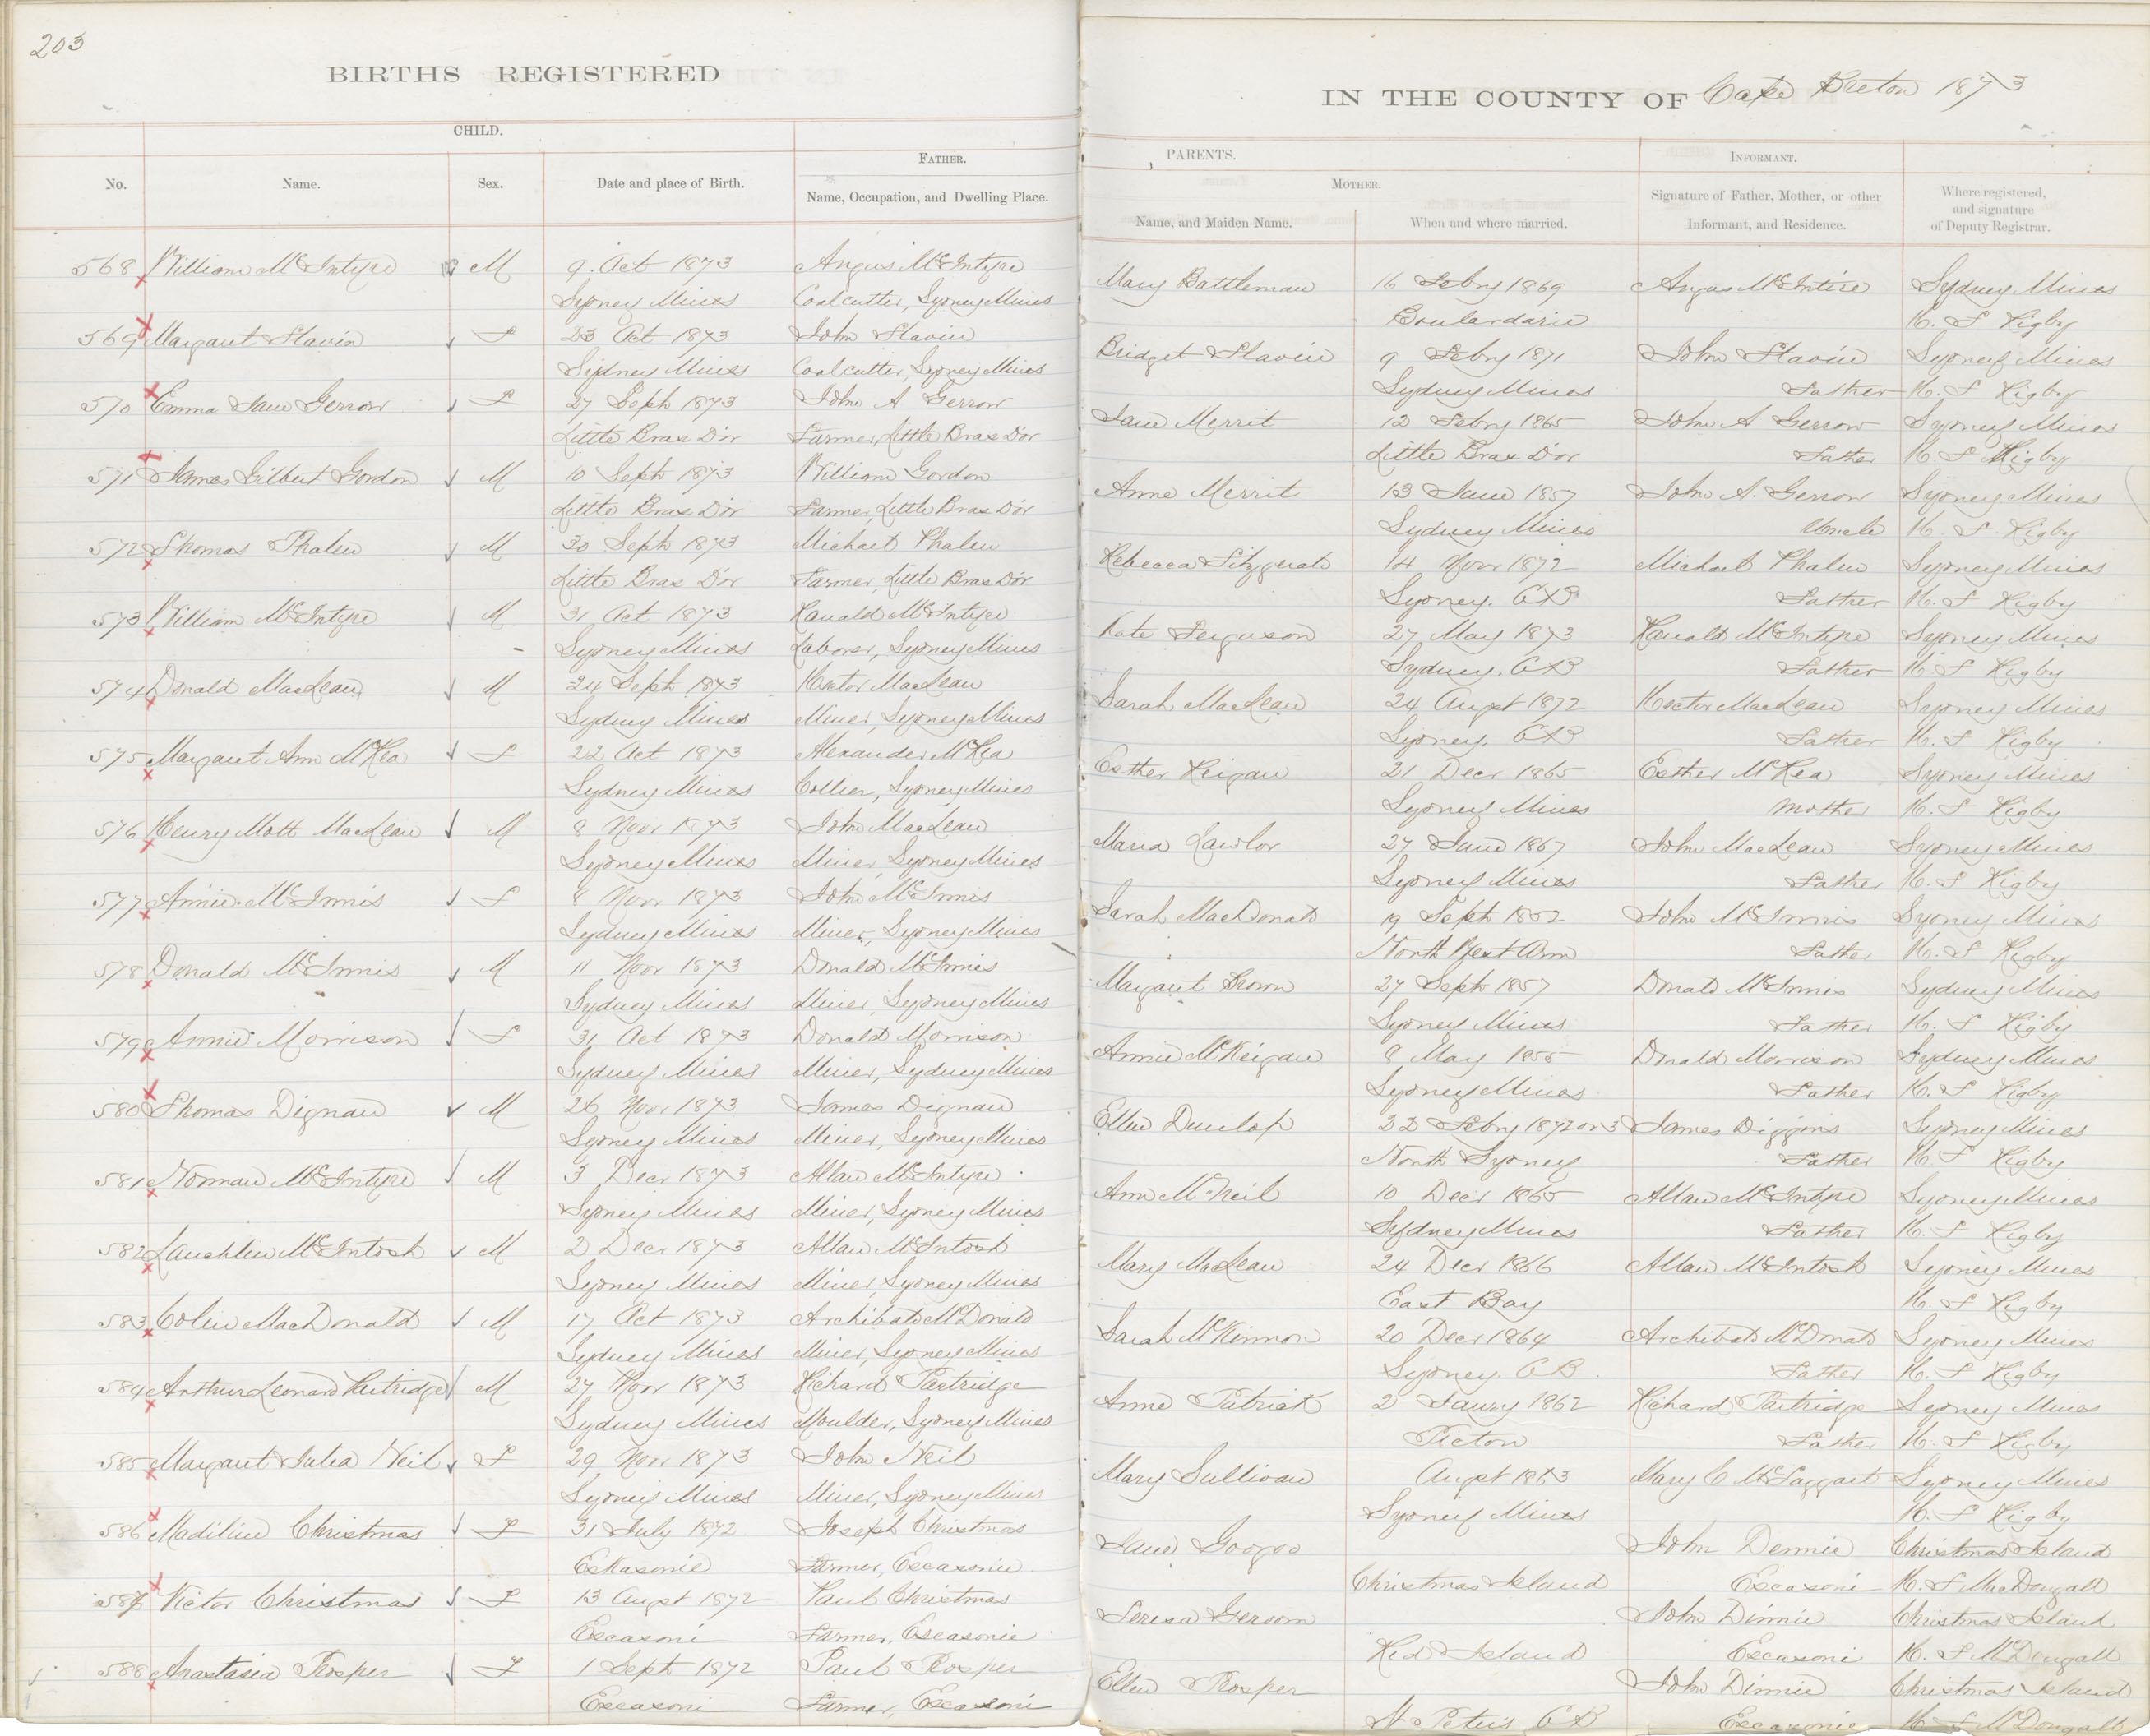 203
BIRTHS REGISTERED
IN THE COUNTY OF Cape Breton 1873
CHILD.
PARENTS.
FATHER.
MOTHER.
INFORMANT.
No. Name. Sex. Date and place of Birth. Name, Occupation, and Dwelling Place. Name, and Maiden Name. When and where married. Signature of Father, Mother, or other Informant, and Residence. Where registered, and signature of Deputy Registrar.
568 William McIntyre M 9. Oct 1873 Angus McIntyre Mary Battleman 16 Febry 1869 Angus McIntire Sydney Mines
Sydney Mines Coalcutter, Sydney Mines Boulardarie H. F Rigby
569 Margaret Slavin F 23 Oct 1873 John Slavin Bridget Slavin 9 Febry 1871 John Slavin Sydney Mines
Sydney Mines Coalcutter, Sydney Mines Sydney Mines Father H. F Rigby
570 Emma Jane Gerrow F 27 Sept 1873 John A Gerrow Jane Merrit 12 Febry 1865 John A Gerrow Sydney Mines
Little Bras D'or Farmer, Little Bras D'or Little Bras D'or Father H F Rigby
571 James Gilbert Gordon M 10 Sept 1873 William Gordon Anne Merrit 13 June 1857 John A. Gerrow Sydney Mines
Little Bras D'or Farmer, Little Bras D'or Sydney Mines Uncle H. F Rigby
572 Thomas Phalen M 30 Sept 1873 Michael Phalen Rebecca Fitzgerald 14 Novr 1872 Michael Phalen Sydney Mines
Little Bras D'or Farmer, Little Bras D'or Sydney. CB Father H. F Rigby
573 William McIntyre M 31 Oct 1873 Ranald McIntyre Kate Ferguson 27 May 1873 Ranald McIntyre Sydney Mines
Sydney Mines Laborer, Sydney Mines Sydney. CB Father H. F Rigby
574 Donald MacLean M 24 Sept 1873 Hector MacLean Sarah MacLean 24 Augst 1872 Hector MacLean Sydney Mines
Sydney Mines Miner, Sydney Mines Sydney. CB Father H. F Rigby
575 Margaret Ann McRea F 22 Oct 1873 Alexander McRea Esther Reigan 21 Decr 1865 Esther McRea Sydney Mines
Sydney Mines Collier, Sydney Mines Sydney Mines Mother H. F Rigby
576 Henry Mott MacLean M 8 Novr 1873 John MacLean Maria Lawlor 27 June 1867 John MacLean Sydney Mines
Sydney Mines Miner, Sydney Mines Sydney Mines Father H. F Rigby
577 Annie McInnis F 8 Novr 1873 John McInnis Sarah MacDonald 19 Sept 1852 John McInnis Sydney Mines
Sydney Mines Miner, Sydney Mines North West Arm Father H. F Rigby
578 Donald McInnis M 11 Novr 1873 Donald McInnis Margaret Brown 27 Sept 1857 Donald McInnis Sydney Mines
Sydney Mines Miner, Sydney Mines Sydney Mines Father H. F Rigby
579 Annie Morrison F 31 Oct 1873 Donald Morrison Annie McKeigan 8 May 1855 Donald Morrison Sydney Mines
Sydney Mines Miner, Sydney Mines Sydney Mines Father H. F Rigby
580 Thomas Dignan M 26 Novr 1873 James Dignan Ellen Dunlop 22 Febry 1872 or 3 James Diggins Sydney Mines
Sydney Mines Miner, Sydney Mines North Sydney Father H F Rigby
581 Norman McIntyre M 3 Decr 1873 Allan McIntyre Ann McNeil 10 Decr 1865 Allan McIntyre Sydney Mines
Sydney Mines Miner, Sydney Mines Sydney Mines Father H. F Rigby
582 Lauchlin McIntosh M 2 Decr 1873 Allan McIntosh Mary MacLean 24 Decr 1866 Allan McIntosh Sydney Mines
Sydney Mines Miner, Sydney Mines East Bay H. F Rigby
583 Colin MacDonald M 17 Oct 1873 Archibald McDonald Sarah McKinnon 20 Decr 1864 Archibald McDonald Sydney Mines
Sydney Mines Miner, Sydney Mines Sydney. CB Father H. F Rigby
584 Arthur Leonard Partridge M 27 Novr 1873 Richard Partridge Anne Patrick 2 Janry 1862 Richard Partridge Sydney Mines
Sydney Mines Moulder, Sydney Mines Picton Father H. F Rigby
585 Margaret Julia Neil F 29 Novr 1873 John Neil Mary Sullivan Augst 1863 Mary C McTaggart Sydney Mines
Sydney Mines Miner, Sydney Mines Sydney Mines H. F Rigby
586 Madiline Christmas F 31 July 1872 Joseph Christmas Jane Googoo John Dennie Christmas Island
Eskasonie Farmer, Escasonie Christmas Island Escasoni H. F MacDougall
587 Victor Christmas F 13 Augst 1872 Paul Christmas Teresa Gersom John Dinnie Christmas Island
Escasoni Farmer, Escasonie Red Island Escasoni H. F McDougall
588 Anastasia Prosper F 1 Sept 1872 Paul Prosper Ellen Prosper John Dinnie Christmas Island
Escasoni Farmer, Escasoni St Peters CB Escasonie H F McDougall